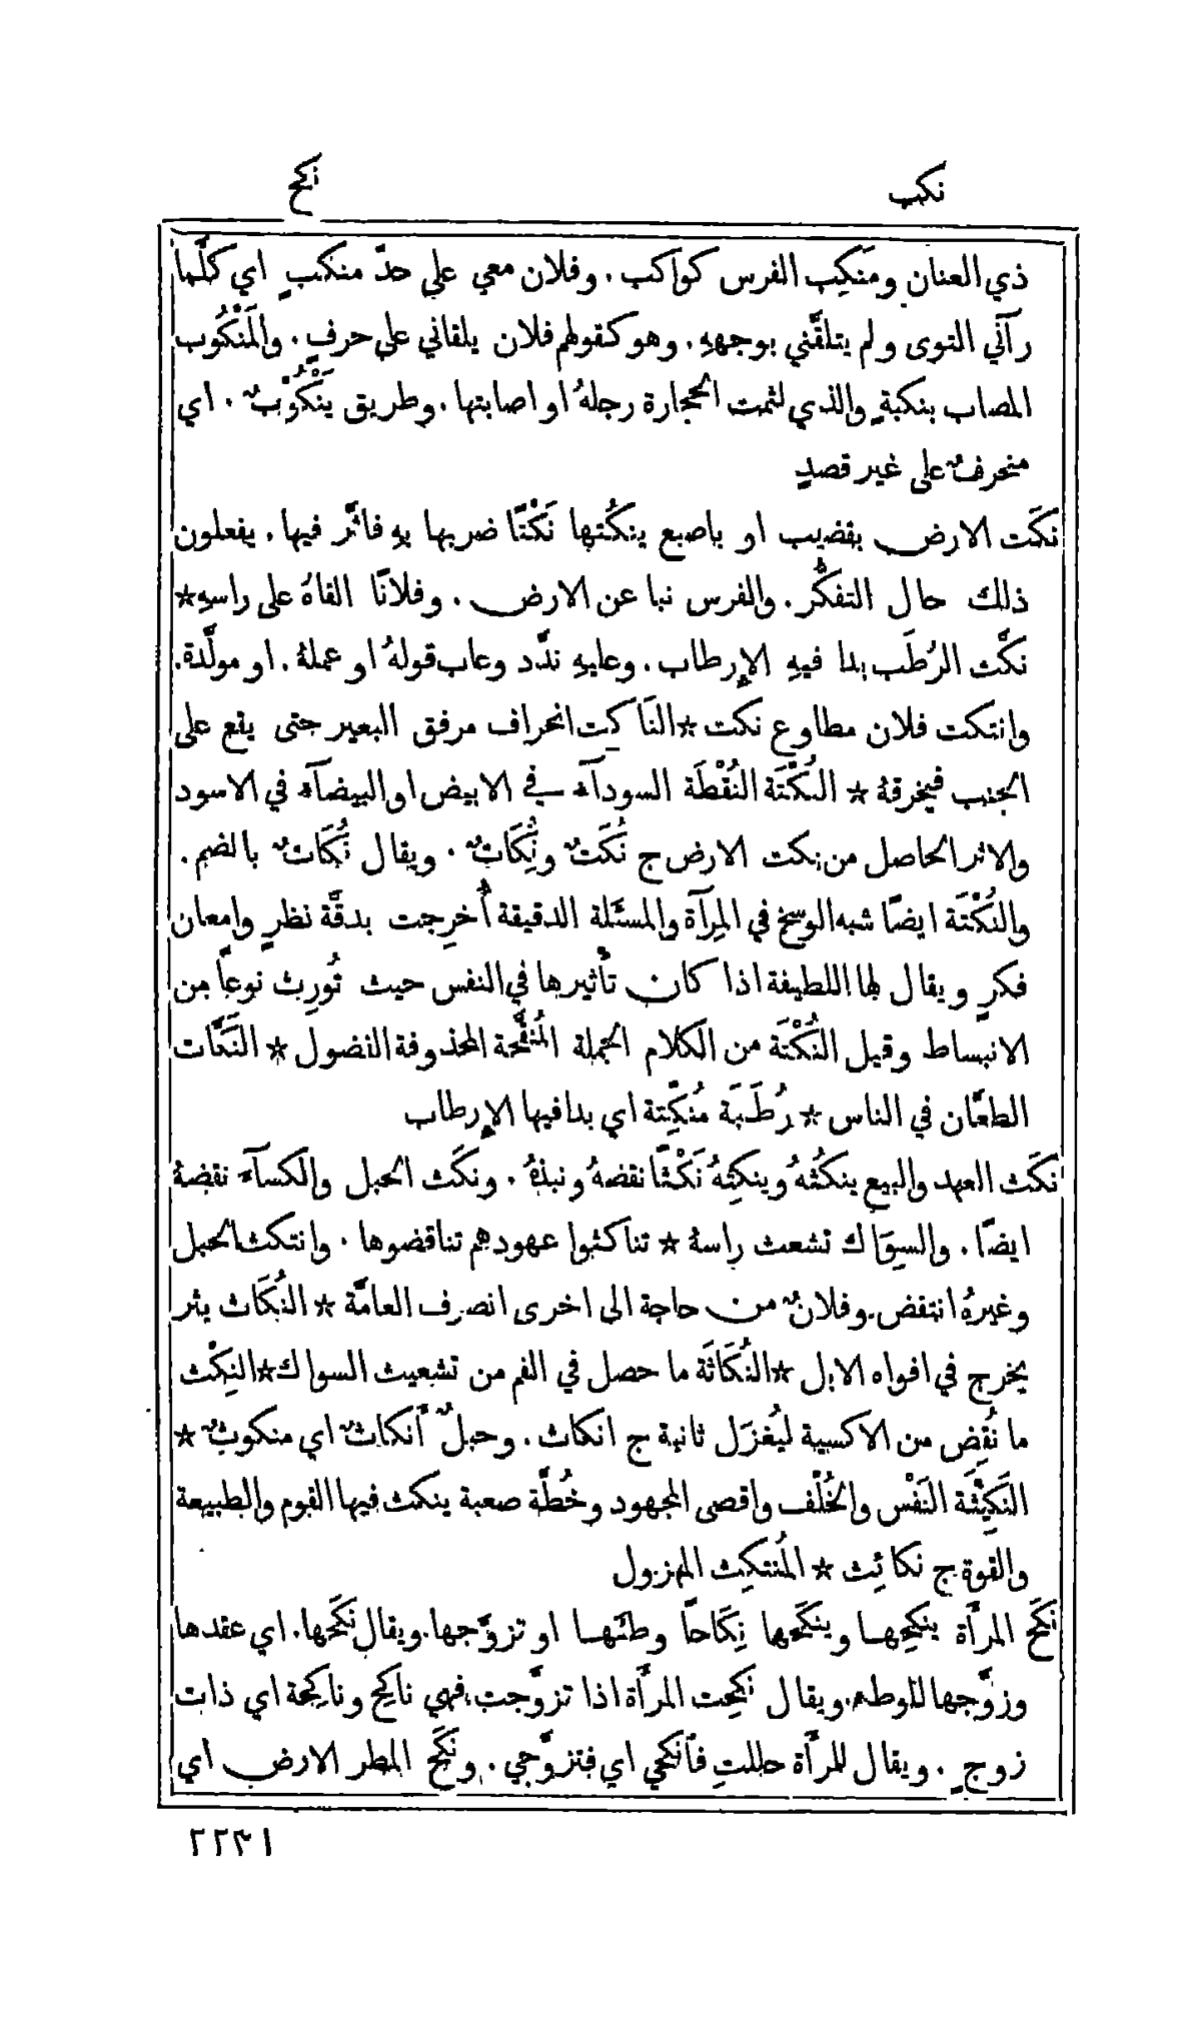 نكب
نكح
ذي العنان ومَنكِب الفرس كواكب. وفلان معي على حدّ منكبٍ اي كلَّما
رآني التوى ولم يتلقَّني بوجههِ. وهو كقولهم فلان يلقاني على حرفٍ. والمَنْكُوب
المصاب بنكبةٍ والذي لثمت الحجارة رجلهُ او اصابتها. وطريق يَنْكُوْبٌ. اي
منحرفٌ على غير قصدٍ
نكَت الارض بقضيب او باصبع ينكُتها نَكْتًا ضربها بهِ فاثَّر فيها. يفعلون
ذلك حال التفكُّر. والفرس نبا عن الارض. وفلانًا القاهُ على راسهِ*
نكَّت الرُطَب بدا فيهِ الإرطاب. وعليهِ ندَّد وعاب قولهُ او عملهُ. او مولَّدة.
وانتكت فلان مطاوع نكت*الناكت انحراف مرفق البعير حتى يقع على
الجنب فيخرقهُ * النُكْتَة النُقْطَة السودآء في الابيض او البيضآء في الاسود
والاثر الحاصل من نكت الارض ج نُكَتٌ ونِكَاتٌ. ويقال نُكَاتٌ بالضم.
والنُكْتَة ايضًا شبه الوسخ في المِرآة والمسئلة الدقيقة أُخرِجت بدقَّة نظرٍ وامعان
فكرٍ ويقال لها اللطيفة اذا كان تأثيرها في النفس حيث تُورِث نوعاً من
الانبساط وقيل النُكْتَة من الكلام الجملة المُنقَّحة المحذوفة الفضول * النَكَّات
الطعَّان في الناس * رُطَبَة مُنكِّتة اي بدا فيها الإرطاب
نكَث العهد والبيع ينكُثهُ وينكِثهُ نَكْثًا نقضهُ ونبذهُ. ونكَث الحبل والكسآء نقضهُ
ايضًا. والسِوَاك تشعث راسهُ * تناكثوا عهودهم تناقضوها. وانتكث الحبل
وغيرهُ انتقض. وفلانٌ من حاجة الى اخرى انصرف العامَّة * النُكَاث بثر
يخرج في افواه الابل *النُكَاثَة ما حصل في الفم من تشعيث السواك*النِكْث
ما نُقِض من الاكسية ليُغزَل ثانية ج انكاث. وحبلٌ أَنكاثٌ اي منكوثٌ *
النَكِيْثَة النَفْس والخُلْف واقصى المجهود وخُطَّة صعبة ينكث فيها القوم والطبيعة
والقوة ج نكائِث * المُنتكِث المهزول
نكَح المرأة ينكِحها وينكَحها نِكَاحاً وطئها او تزوَّجها. ويقال نكَحها. اي عقدها
وزوَّجها للوطء. ويقال نكَحت المرأة اذا تزوَّجت. فهي ناكح وناكحة اي ذات
زوجٍ. ويقال للمرأة حللتِ فأنكحي اي فتزوَّجي. ونكَح المطر الارض اي
٢٢٣١